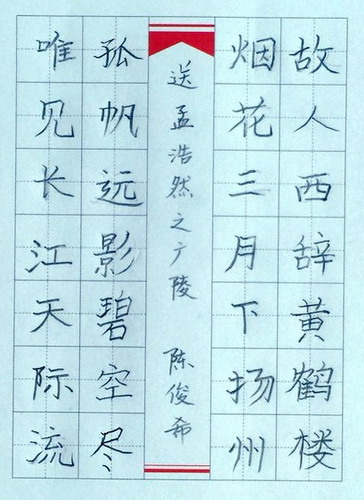 故人西辞黄鹤楼
烟花三月下扬州
送孟浩然之广陵 陈俊希
孤帆远影碧空尽
唯见长江天际流